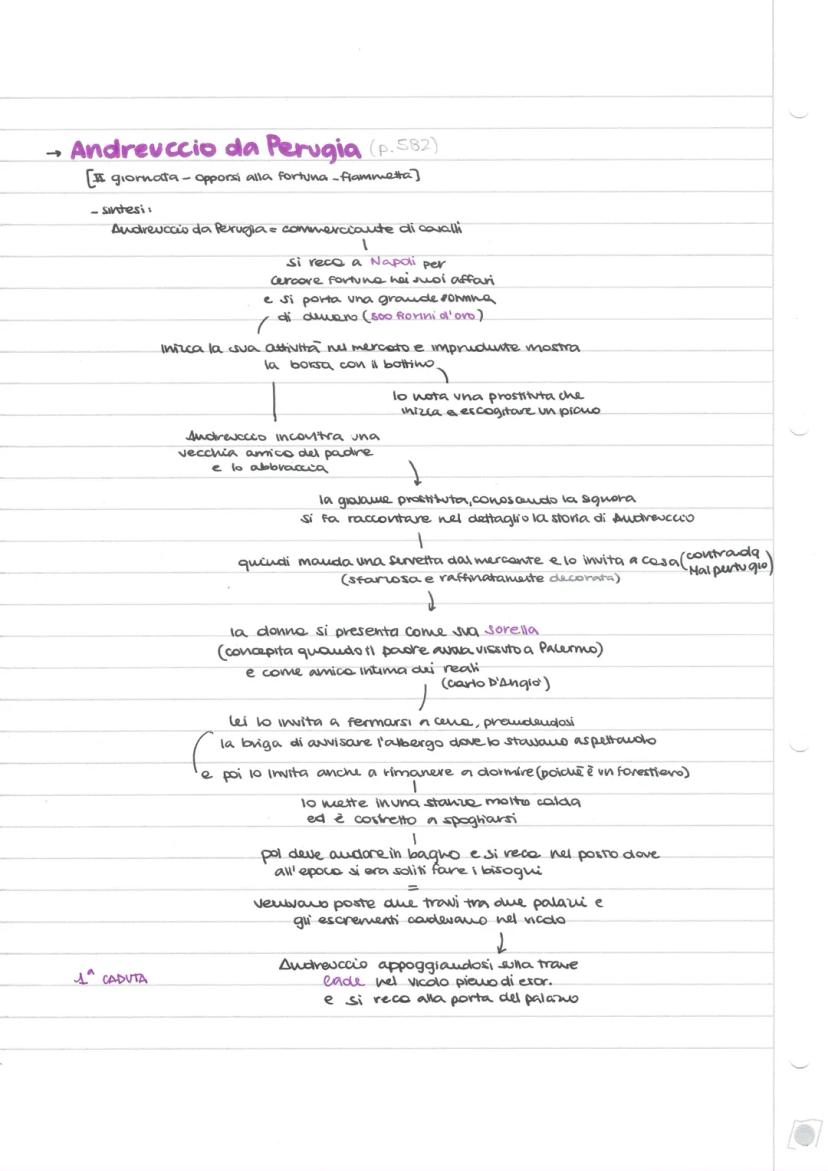 → Andreuccio da Perugia (p.582)
[II giornata - opporsi alla fortuna - fiammetta]
- sintesi:
Andreuccio da Perugia = commerciante di cavalli
si reca a Napoli per
cercare fortuna nei suoi affari
e si porta una grande somma
di denaro (500 fiorini d'oro)
inizia la sua attività nel mercato e imprudente mostra
la borsa con il bottino
lo nota una prostituta che
inizia a escogitare un piano
Andreuccio incontra una
vecchia amica del padre
e lo abbraccia
la giovane prostituta, conoscendo la signora
si fa raccontare nel dettaglio la storia di Andreuccio
quindi manda una servetta dal mercante e lo invita a casa (contrada Malpertugio)
(sfarzosa e raffinatamente decorata)
la donna si presenta come sua sorella
(concepita quando il padre aveva vissuto a Palermo)
e come amica intima dei reali
(Carlo D'Angiò)
lei lo invita a fermarsi a cena, prendendosi
la briga di avvisare l'albergo dove lo stavano aspettando
e poi lo invita anche a rimanere a dormire (poiché è un forestiero)
lo mette in una stanza molto calda
ed è costretto a spogliarsi
poi deve andare in bagno e si reca nel posto dove
all'epoca si era soliti fare i bisogni
=
venivano poste due travi tra due palazzi e
gli escrementi cadevano nel vicolo
Andreuccio appoggiandosi sulla trave
1ª CADUTA
cade nel vicolo pieno di escr.
e si reca alla porta del palazzo